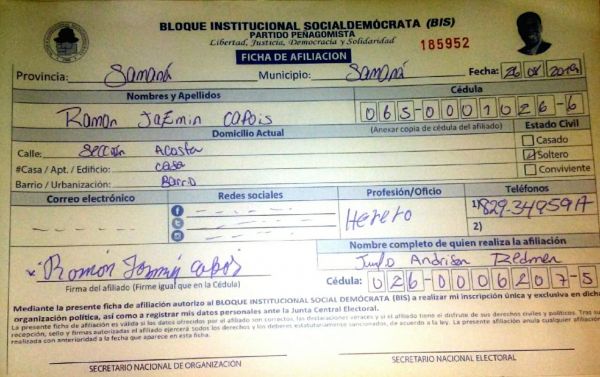 BLOQUE INSTITUCIONAL SOCIALDEMÓCRATA (BIS)
PARTIDO PEÑAGOMISTA
Libertad, Justicia, Democracia y Solidaridad
185952
FICHA DE AFILIACION
Provincia: Samaná Municipio: Samaná Fecha: 26 08 2019
Nombres y Apellidos Cédula
Ramon Jazmin Capois 065-0001026-6
Domicilio Actual (Anexar copia de cédula del afiliado) Estado Civil
Calle: Sección Acosta Casado
#Casa / Apt. / Edificio: casa Soltero
Barrio / Urbanización: Barrio Conviviente
Correo electrónico Redes sociales Profesión/Oficio Teléfonos
Herero 1)
2)
Ramón Jazmín Capois
Firma del afiliado (Firme igual que en la Cédula)
Nombre completo de quien realiza la afiliación
Julio Andrison Redman
Cédula: 026-0006207-5
Mediante la presente ficha de afiliación autorizo al BLOQUE INSTITUCIONAL SOCIAL DEMÓCRATA (BIS) a realizar mi inscripción única y exclusiva en dicha
organización política, así como a registrar mis datos personales ante la Junta Central Electoral.
La presente ficha de afiliación es válida si los datos ofrecidos por el afiliado son correctos, las declaraciones veraces y si el afiliado tiene el disfrute de sus derechos civiles y políticos. Tras su
recepción, sello y firmas autorizadas el afiliado ejercerá todos los derechos y los deberes estatutariamente sancionados, de acuerdo a la ley. La presente afiliación anula cualquier afiliación
realizada con anterioridad a la fecha que aparece en esta ficha.
SECRETARIO NACIONAL DE ORGANIZACIÓN SECRETARIO NACIONAL ELECTORAL